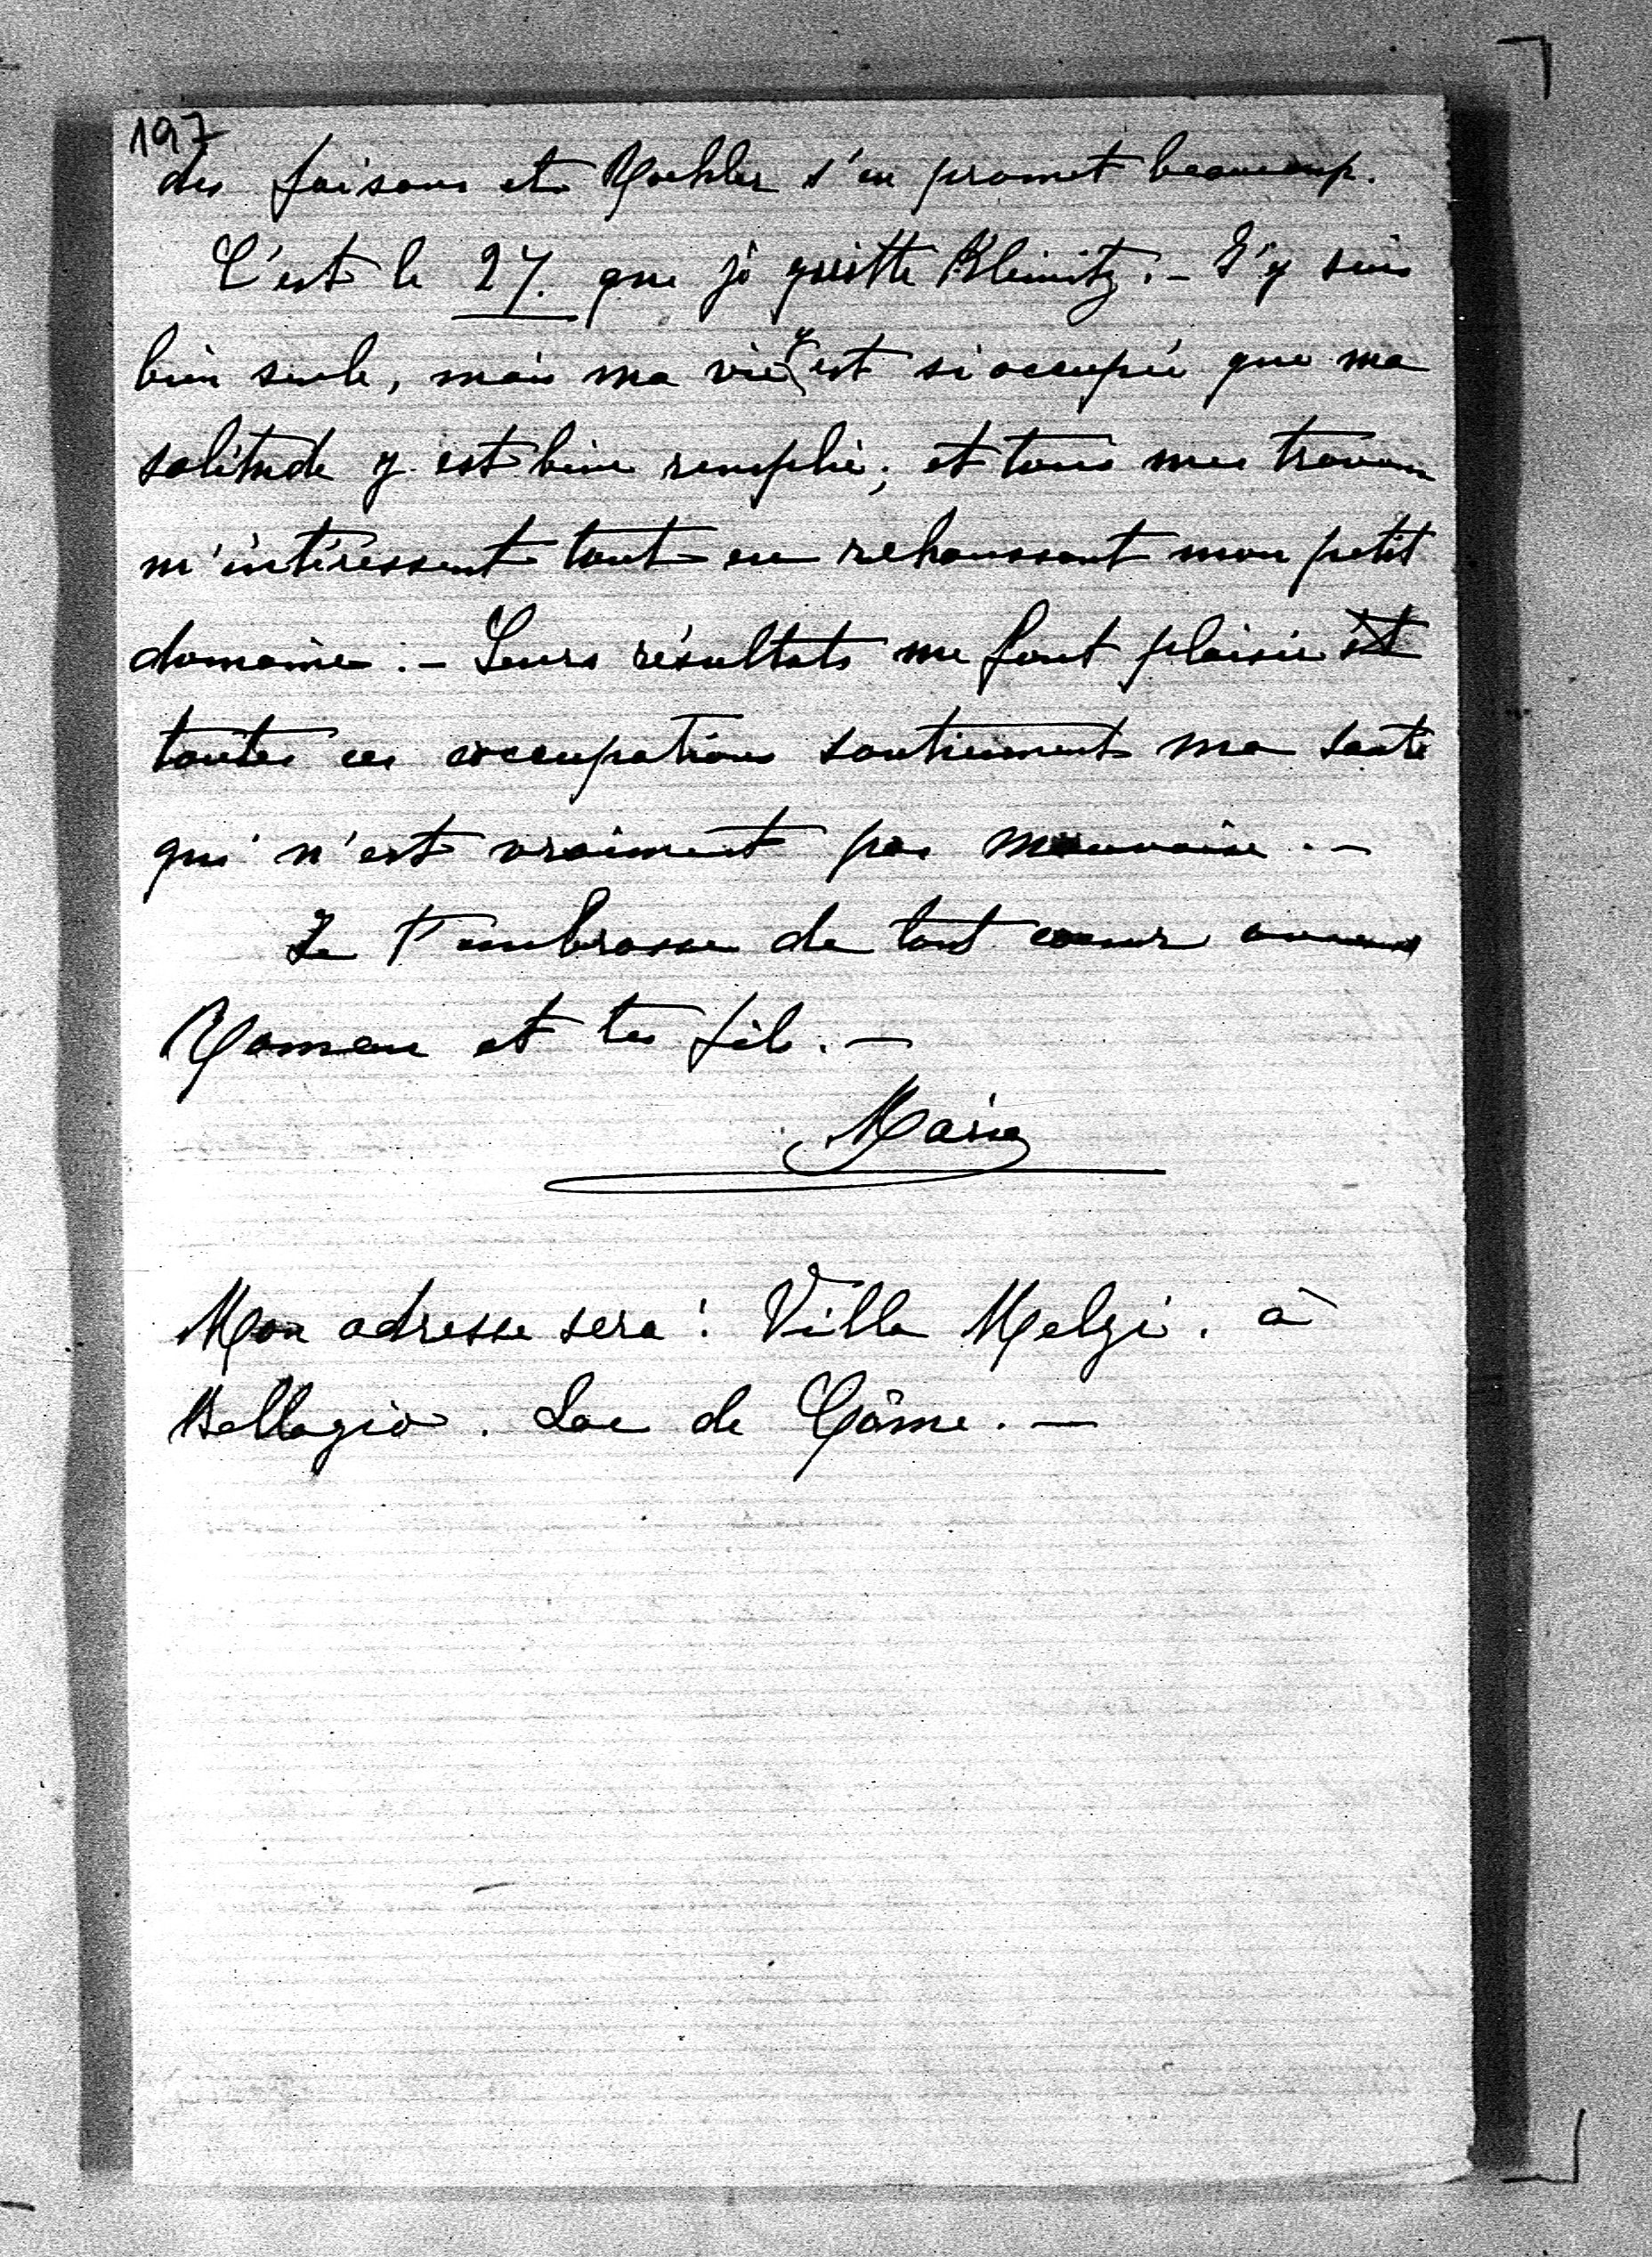 197
des faisans et Koehler s'en promet beaucoup.
C'est le 27. que je quitte Kleinitz. - J'y suis
bien seule, mais ma vie y est si occupée que ma
solitude y est bien remplie; et tous mes travaux
m'intéressent tout en rehaussant mon petit
domaine. - Leurs résultats me font plaisir et
toutes ces occupations soutiennent ma santé
qui n'est vraiment pas mauvaise. -
Je t'embrasse de tout coeur
et tes fils. -
Marie
Mon adresse sera: Villa Melzi. à
Bellagio. Lac de Côme. -